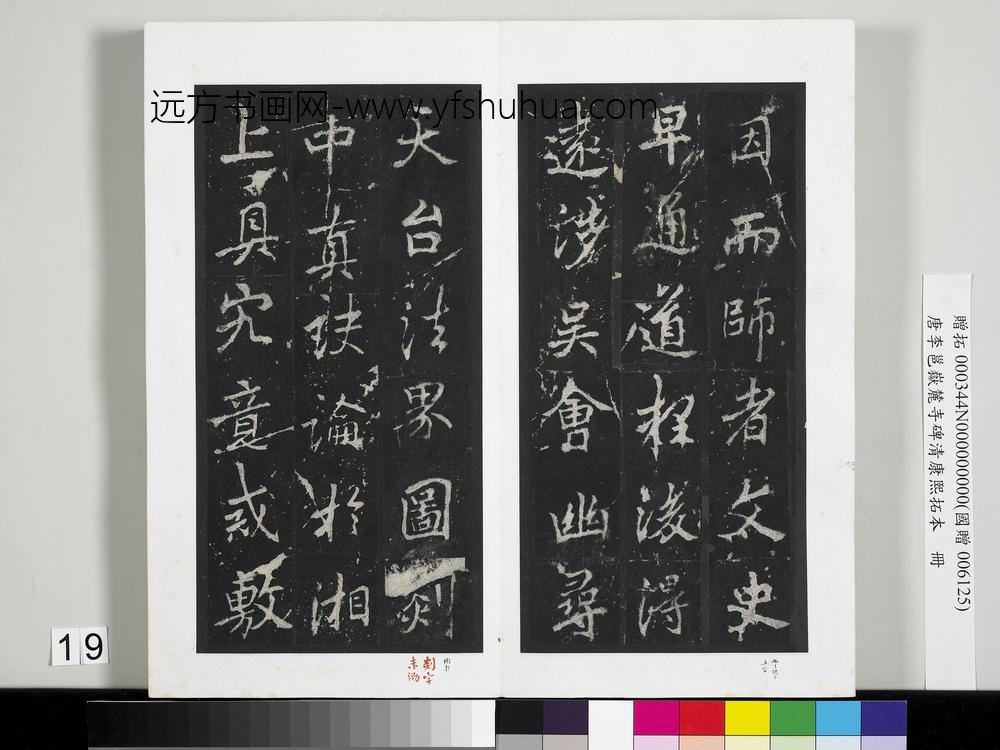 远方书画网-www.yfshuhua.com
因而師者文史
早通道程浚得
遠涉吳會幽尋
天台法界圖剡
中真訣論於湘
上具究竟戒敷
剡字
未泐
19
贈拓 000344N000000000(國贈 006125)
唐李邕嶽麓寺碑清康熙拓本 冊